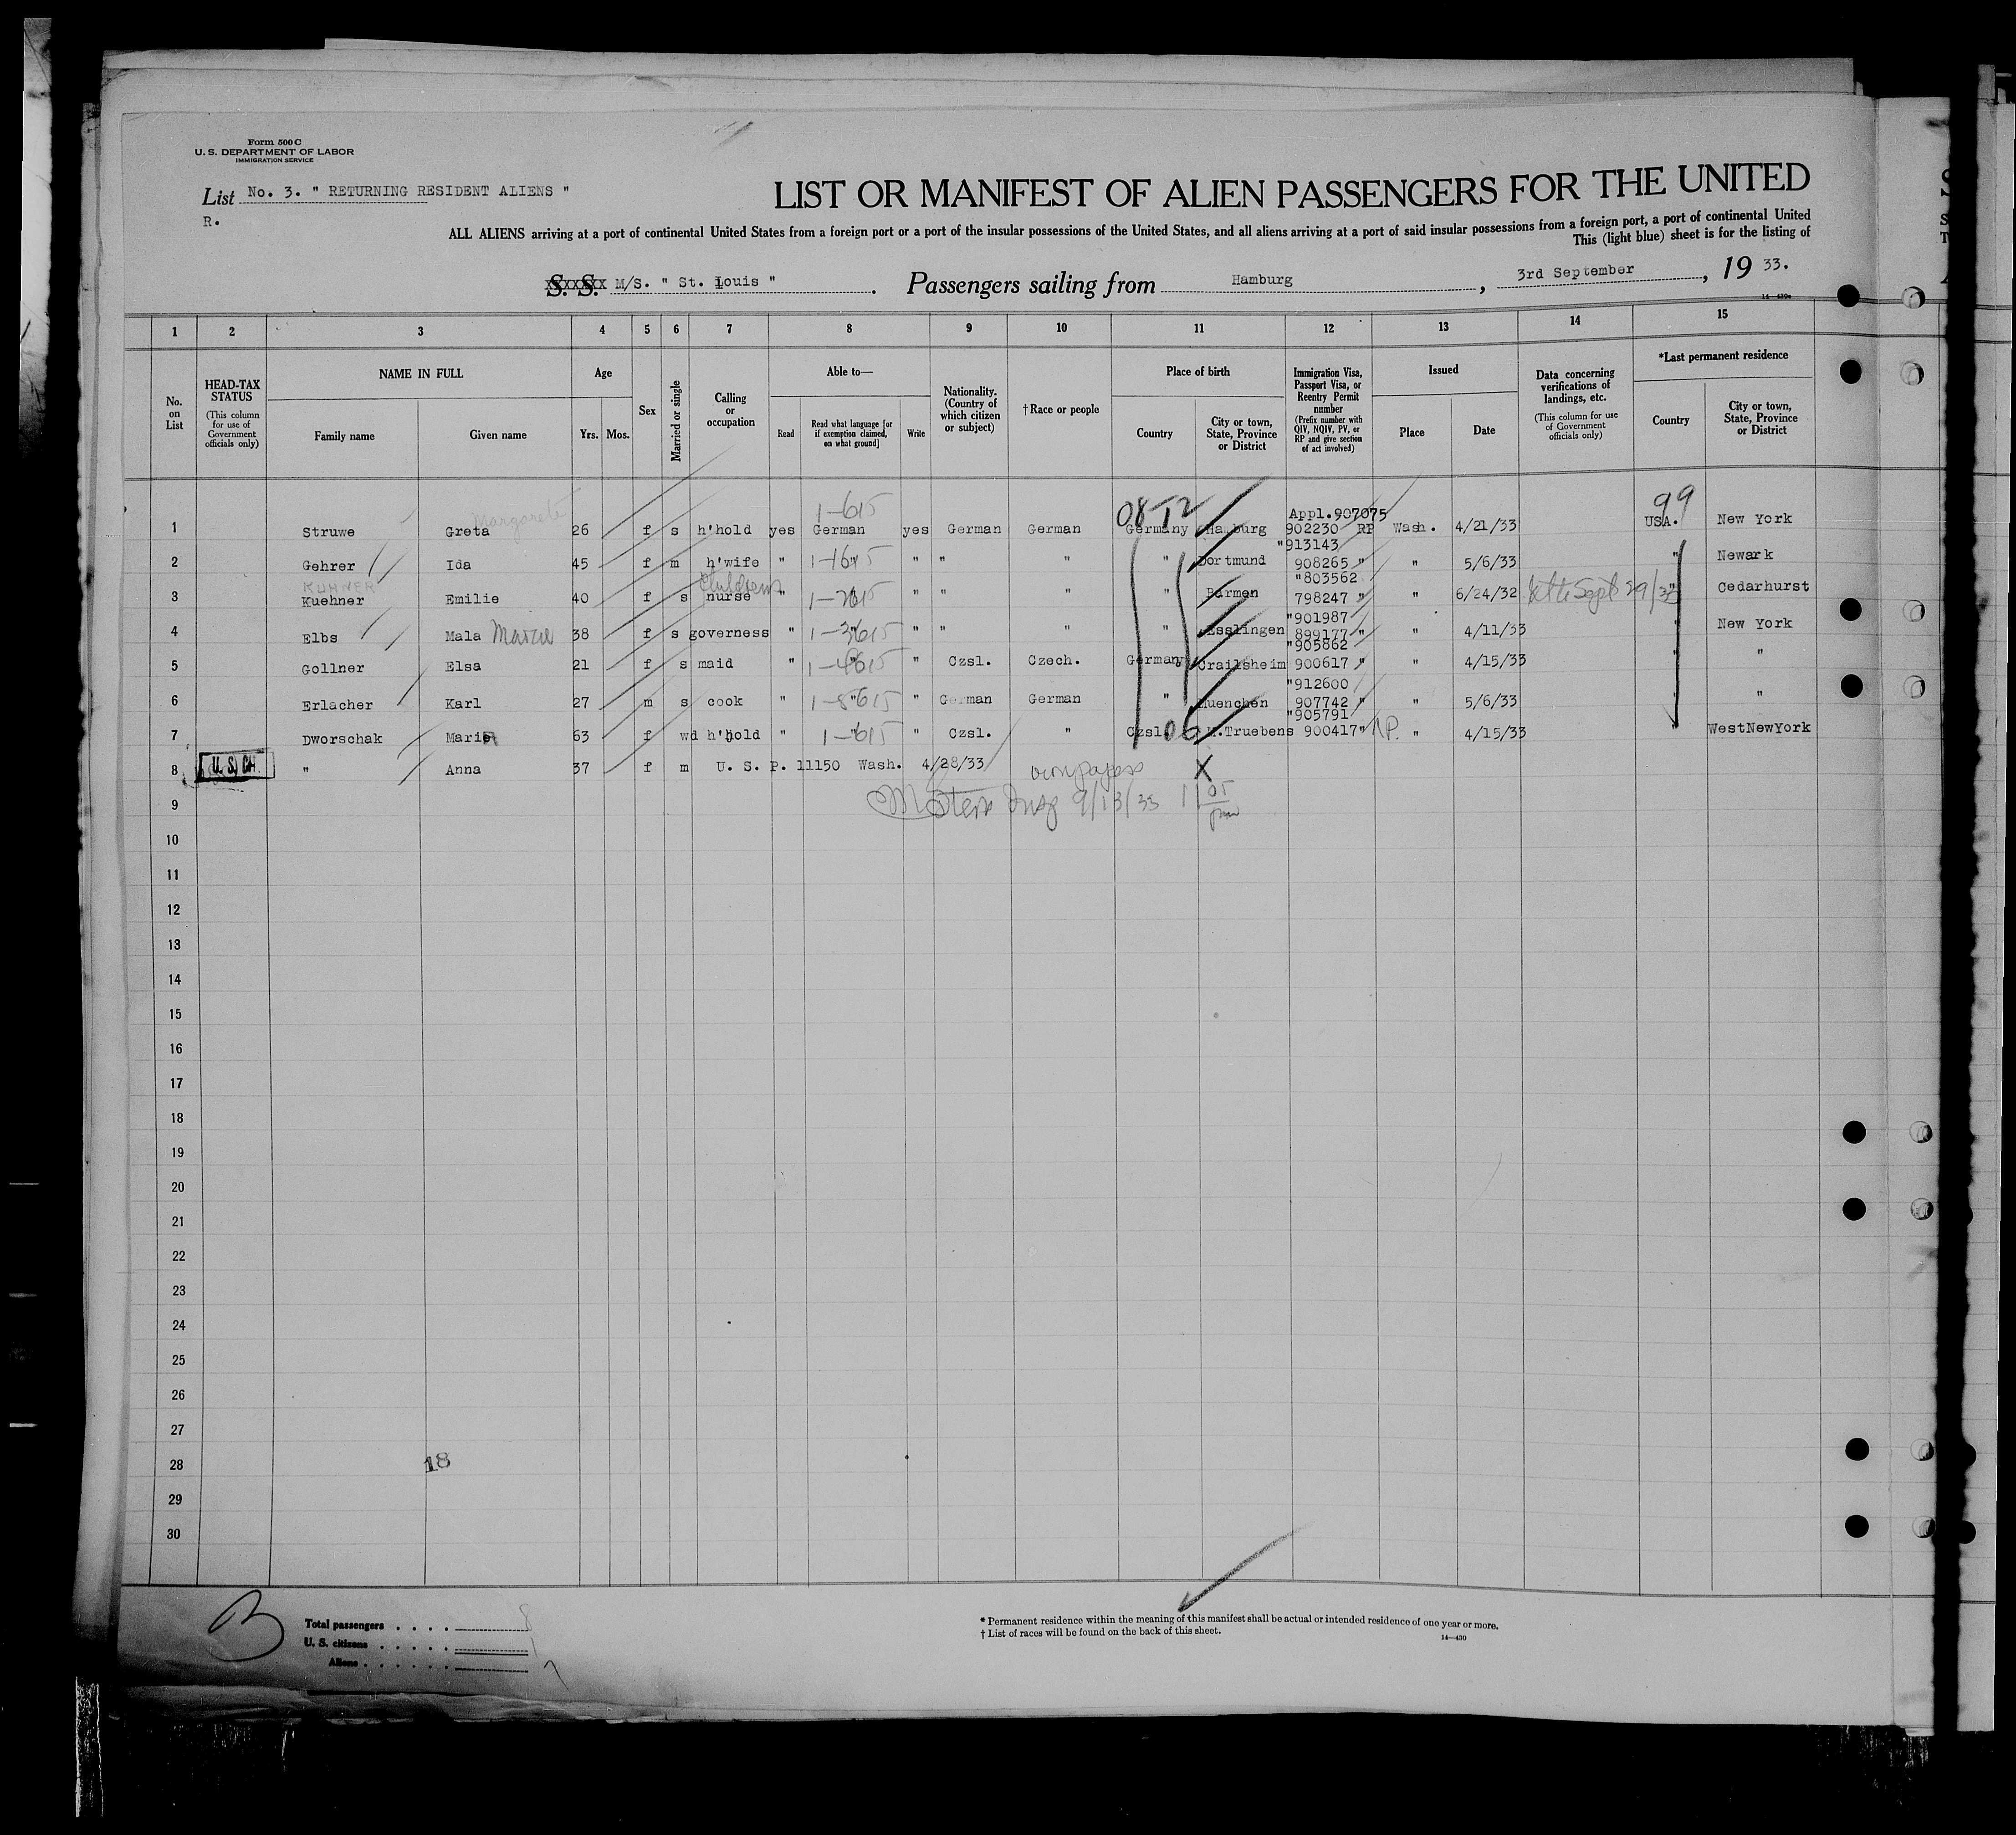 Form 500 C
U. S. DEPARTMENT OF LABOR
IMMIGRATION SERVICE
List No. 3. " RETURNING RESIDENT ALIENS "
R.
LIST OR MANIFEST OF ALIEN PASSENGERS FOR THE UNITED
ALL ALIENS arriving at a port of continental United States from a foreign port or a port of the insular possessions of the United States, and all aliens arriving at a port of said insular possessions from a foreign port, a port of continental United
This (light blue) sheet is for the listing of
S. S. M/S. " St. Louis " . Passengers sailing from Hamburg , 3rd September , 19 33.
1 2 3 4 5 6 7 8 9 10 11 12 13 14 15
No. on List
HEAD-TAX STATUS
(This column for use of Government officials only)
NAME IN FULL
Family name Given name
Age
Yrs. Mos.
Sex
Married or single
Calling or occupation
Able to—
Read Read what language [or if exemption claimed, on what ground] Write
Nationality. (Country of which citizen or subject)
†Race or people
Place of birth
Country City or town, State, Province or District
Immigration Visa, Passport Visa, or Reentry Permit number
(Prefix number with QIV, NQIV, PV, or RP and give section of act involved)
Issued
Place Date
Data concerning verifications of landings, etc.
(This column for use of Government officials only)
*Last permanent residence
Country City or town, State, Province or District
Margarete 1-615 Appl.907075 99
1 Struwe Greta 26 f s h'hold yes German yes German German Germany Hamburg 902230 RP Wash. 4/21/33 USA. New York
"913143
2 Gehrer Ida 45 f m h'wife " " " " " " Dortmund 908265 " " 5/6/33 " Newark
KUHNER Childrens "803562
3 Kuehner Emilie 40 f s nurse " " " " " " Barmen 798247 " " 6/24/32 Sept 29/33 " Cedarhurst
"901987
4 Elbs Mala Marie 38 f s governess " " " " " " Esslingen 899177 " " 4/11/33 " New York
"905862
5 Gollner Elsa 21 f s maid " " " Czsl. Czech. Germany Crailsheim 900617 " " 4/15/33 " "
"912600
6 Erlacher Karl 27 m s cook " " " German German " Muenchen 907742 " " 5/6/33 " "
"905791
7 Dworschak Maria 63 f wd h'hold " 1-615 " Czsl. " Czsl. 06 M.Truebens 900417" RP. " 4/15/33 WestNewYork
8 U.S. " Anna 37 f m U. S. P. 11150 Wash. 4/28/33 X
9 Insp 9/13/33
10
11
12
13
14
15
16
17
18
19
20
21
22
23
24
25
26
27
28 18
29
30
Total passengers . . . . 8
U. S. citizens . . . . . 1
Aliens . . . . . . 7
* Permanent residence within the meaning of this manifest shall be actual or intended residence of one year or more.
† List of races will be found on the back of this sheet.
14—430